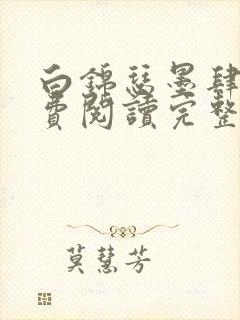 白錦瑟墨肆
費閱讀完整
莫慧芳